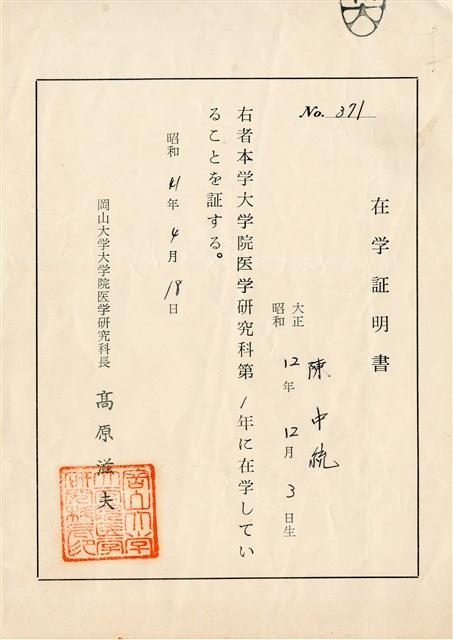 No. 371
在学証明書
陳中統
大正
昭和 12年 12月 3日生
右者本学大学院医学研究科第 1年に在学してい
ることを証する。
昭和 41年 4月 18日
岡山大学大学院医学研究科長 高原滋夫